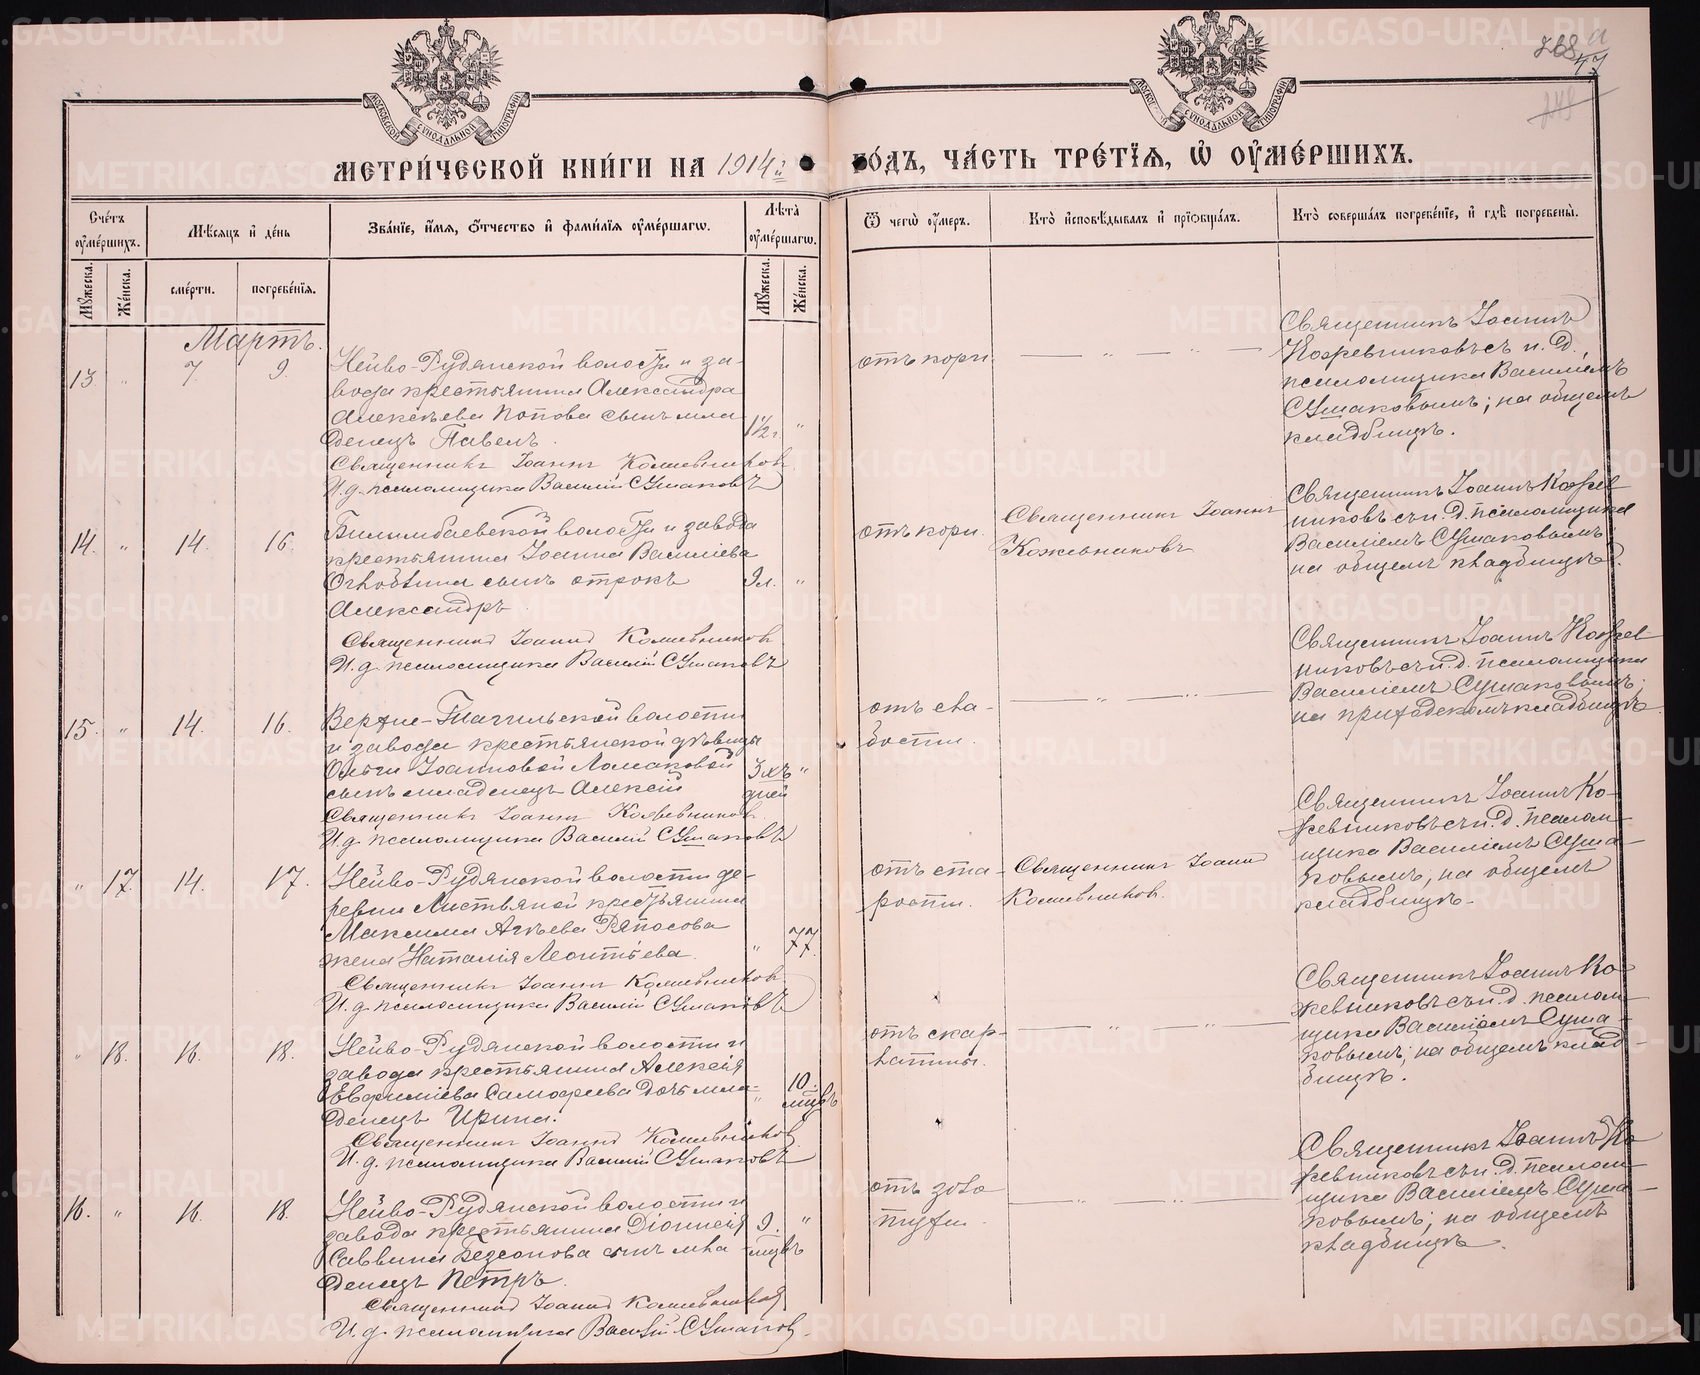 МЕТРИ́ЧЕСКОЙ КНИ́ГИ НА 1914й
ГО́ДЪ, ЧА́СТЬ ТРЕ́ТІѦ, Ѡ҆ ОУ҆МЕ́РШИХЪ.
Сче́тъ оу҆ме́ршихъ.
Мѣ́сяцъ и҆ де́нь
Зва́ніе, и҆́мя, ѻ҆́тчество и҆ фамилія оу҆ме́ршагѡ.
Лѣта̀ оу҆ме́ршагѡ.
Ѿ чегѡ̀ оу҆́меръ.
Кто̀ и҆сповѣ́дывалъ и҆ пріѻбща́лъ.
Кто̀ соверша́лъ погребе́ніе, и҆ гдѣ̀ погребены̀.
Мꙋ́жеска.
Же́нска.
сме́рти.
погребе́нія.
Мꙋ́жеска.
Же́нска.
Мартъ.
13 " 7. 9.
Нейво-Рудянской волости и за-
вода крестьянина Александра
Алексѣева Попова сынъ мла
денецъ Павелъ.
1½ г. "
Священникъ Іоаннъ Кожевниковъ
И. д. псаломщика Василій Сушаковъ
отъ кори.
Священникъ Іоаннъ
Кожевниковъ съ и. д.
псаломщика Василіемъ
Сушаковымъ; на общемъ
кладбищѣ.
14. " 14. 16.
Билимбаевской волости и завода
крестьянина Іоанна Василіева
сынъ отрокъ
Александръ
9 л. "
Священникъ Іоаннъ Кожевниковъ
И. д. псаломщика Василій Сушаковъ
отъ кори.
Священникъ Іоаннъ
Кожевниковъ
Священникъ Іоаннъ Кожев
никовъ съ и. д. псаломщика
Василіемъ Сушаковымъ,
на общемъ кладбищѣ.
15. " 14. 16.
Верхне-Тагильской волости
и завода крестьянской дѣвицы
Ольги Іоанновой Ломаковой
сынъ младенецъ Алексій
3хъ дней "
Священникъ Іоаннъ Кожевниковъ.
И. д. псаломщика Василій Сушаковъ
отъ сла-
бости.
Священникъ Іоаннъ Кожев
никовъ съ и. д. псаломщика
Василіемъ Сушаковымъ;
на приходскомъ кладбищѣ
" 17. 14. 17.
Нейво-Рудянской волости де-
ревни Листвяной крестьянина
Максима Агѣева Ряпосова
жена Наталія Леонтіева.
" 77.
Священникъ Іоаннъ Кожевниковъ
И. д. псаломщика Василій Сушаковъ
отъ ста-
рости.
Священникъ Іоаннъ
Кожевниковъ.
Священникъ Іоаннъ Ко-
жевниковъ съ и. д. псалом-
щика Василіемъ Суша-
ковымъ; на общемъ
кладбищѣ.
" 18. 16. 18.
Нейво-Рудянской волости и
завода крестьянина Алексія
Евфиміева Самофеева дочь мла-
денецъ Ирина.
" 10. мцевъ
Священникъ Іоаннъ Кожевниковъ
И. д. псаломщика Василій Сушаковъ
отъ скар-
латины.
Священникъ Іоаннъ Ко-
жевниковъ съ и. д. псалом-
щика Василіемъ Суша-
ковымъ; на общемъ клад-
бищѣ.
16. " 16. 18.
Нейво-Рудянской волости и
завода крестьянина Діонисія
Саввина Безсонова сынъ мла-
денецъ Петръ.
9. мцевъ "
Священникъ Іоаннъ Кожевниковъ
И. д. псаломщика Василій Сушаковъ.
отъ золо
тухи.
Священникъ Іоаннъ Ко
жевниковъ съ и. д. псалом-
щика Василіемъ Суша-
ковымъ; на общемъ
кладбищѣ.
METRIKI.GASO-URAL.RU